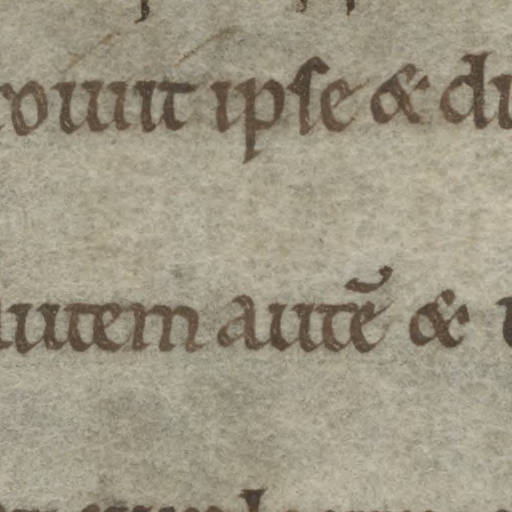 roiuit ipse & di
autem autē &